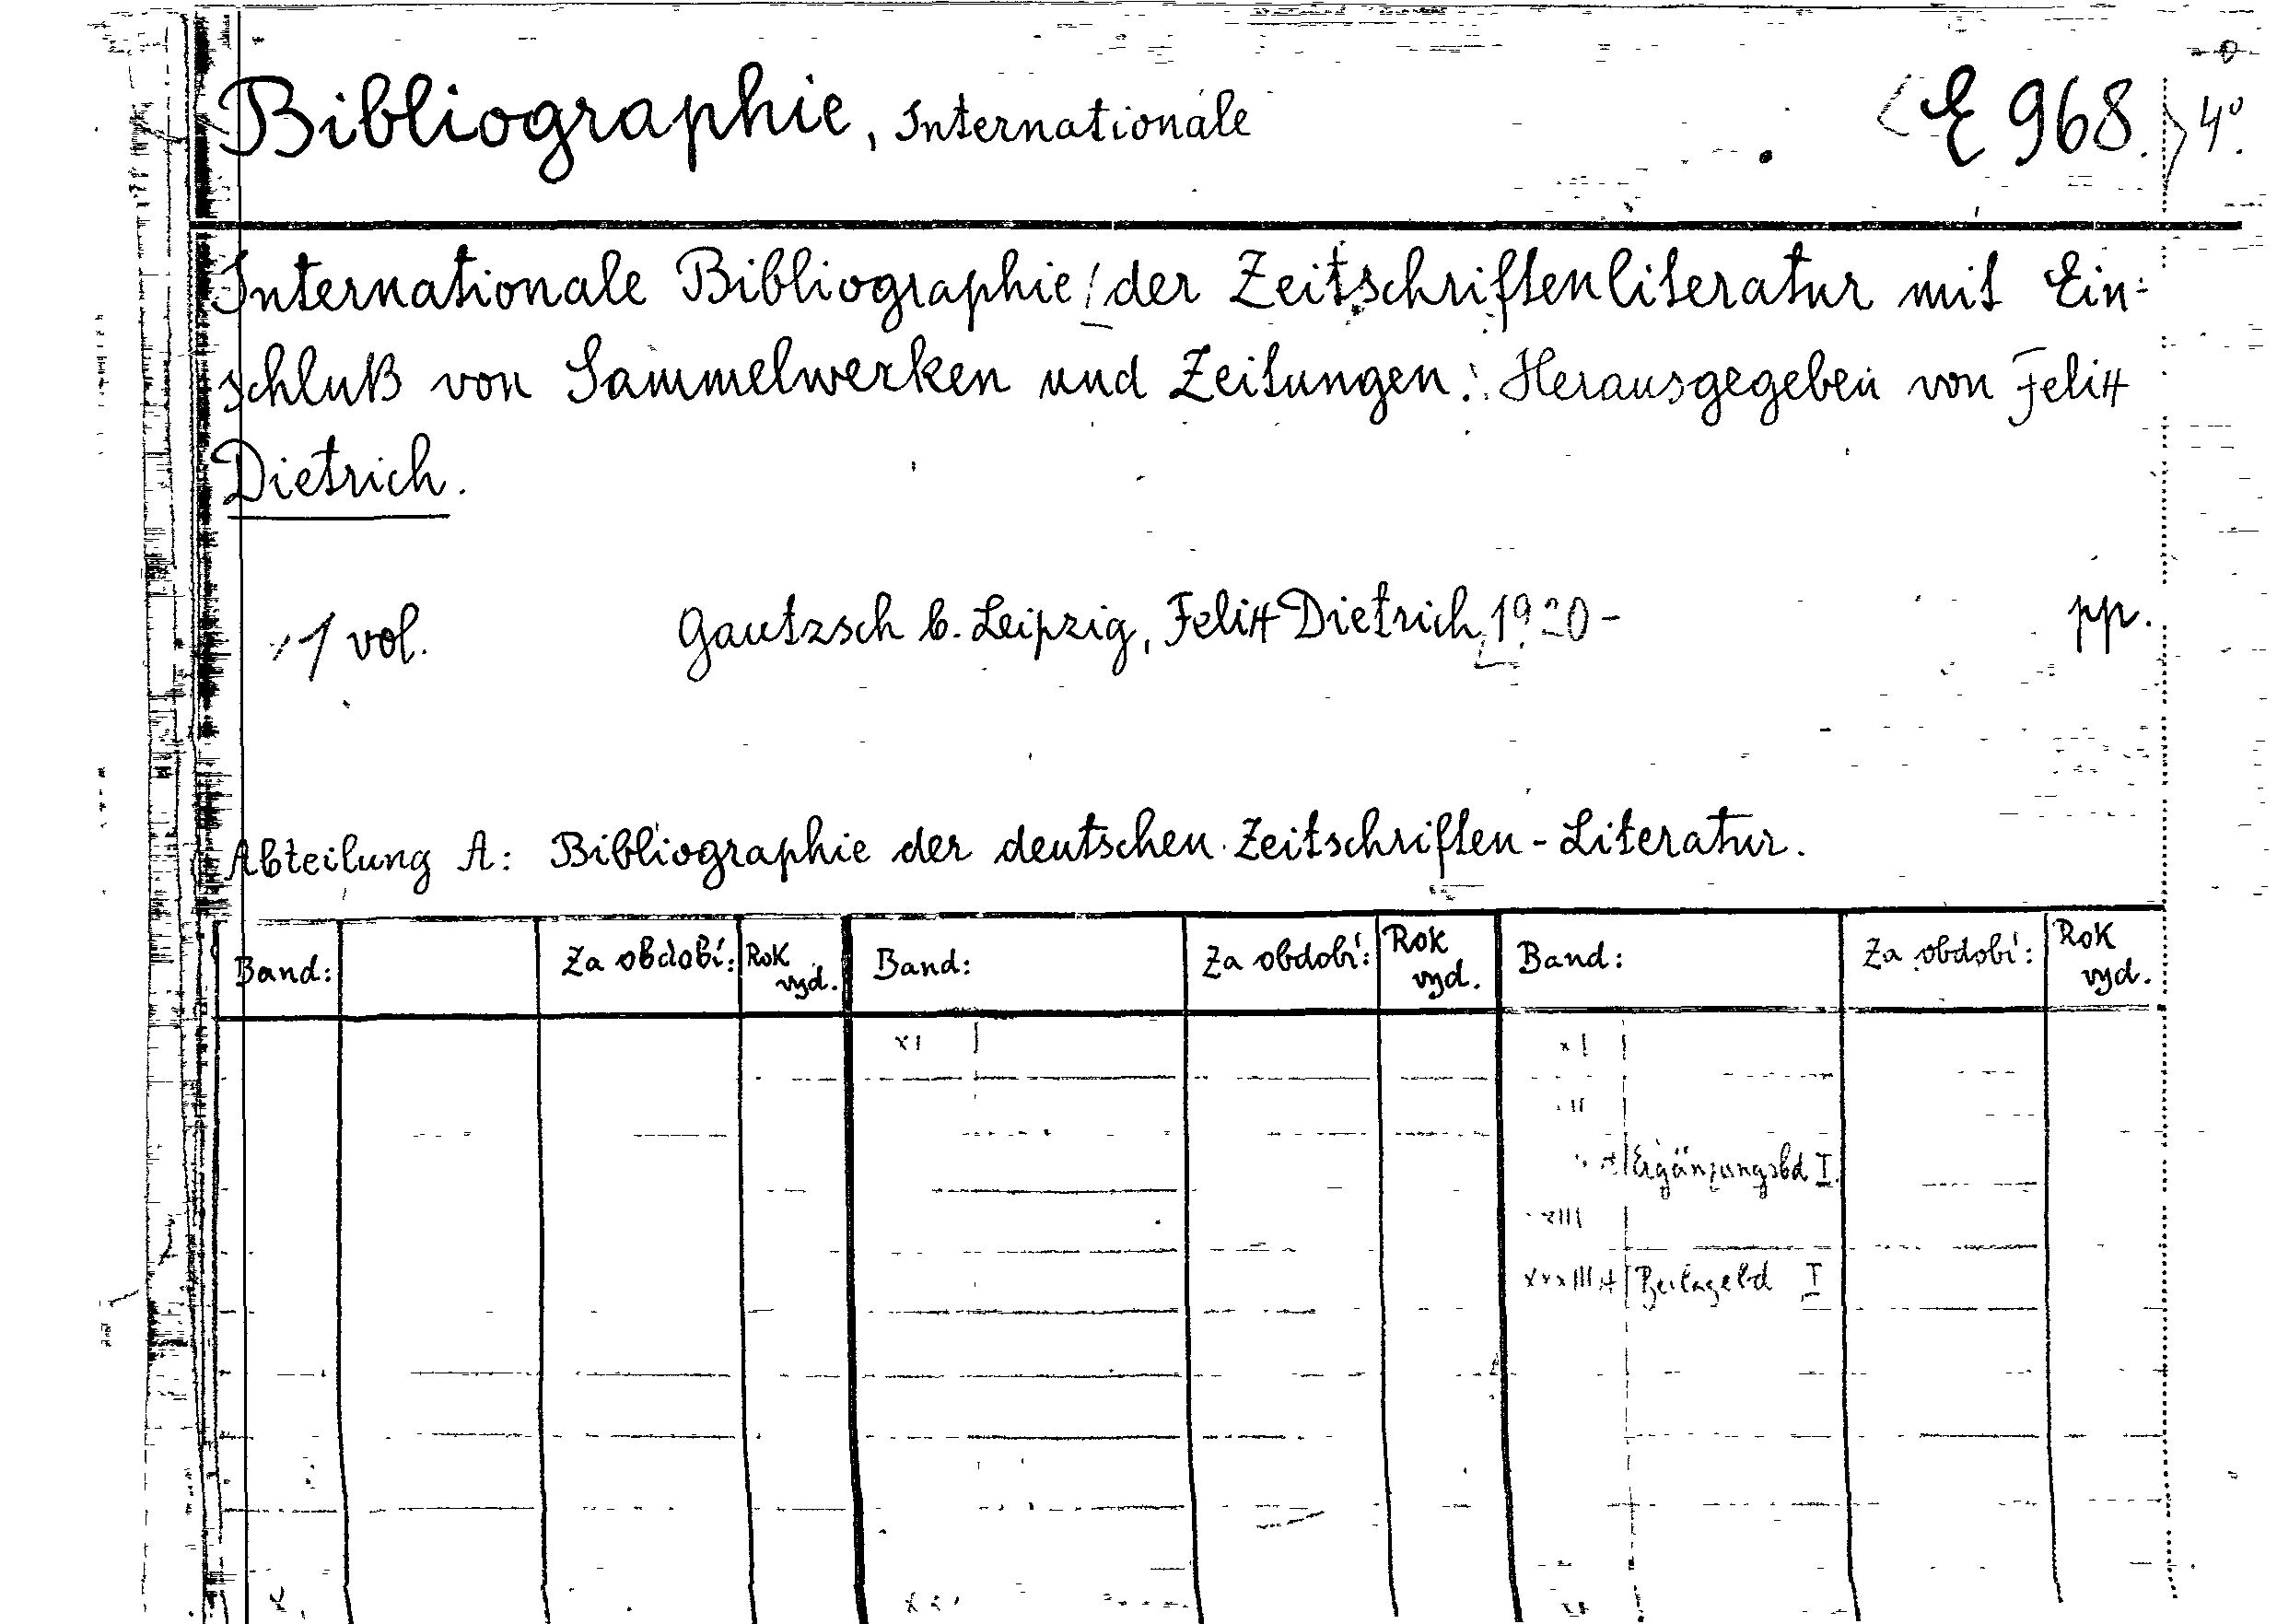 Bibliographie, Internationale <E 968.> 4°.
Internationale Bibliographie der Zeitschriftenliteratur mit Ein=
schluß von Sammelwerken und Zeitungen: Herausgegeben von Felix
Dietrich.
1 vol. Gautzsch b. Leipzig, Felix Dietrich, 1920- pp.
Abteilung A: Bibliographie der deutschen Zeitschriften-Literatur.
Band: Za období: Rok vyd. Band: Za období: Rok vyd. Band: Za období: Rok vyd.
Ergänzungsbd I.
Beilagebd I